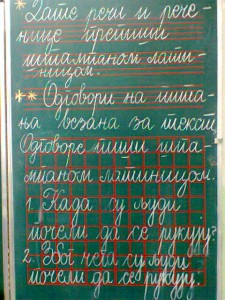 * Дате речи и рече-
нице препиши
штампаном лати-
ницом.
* Одговори на пита-
ња везана за текст.
Одговоре пиши штам-
паном латиницом.
1. Када су људи
почели да се рукују?
2. Због чега су људи
почели да се рукују?